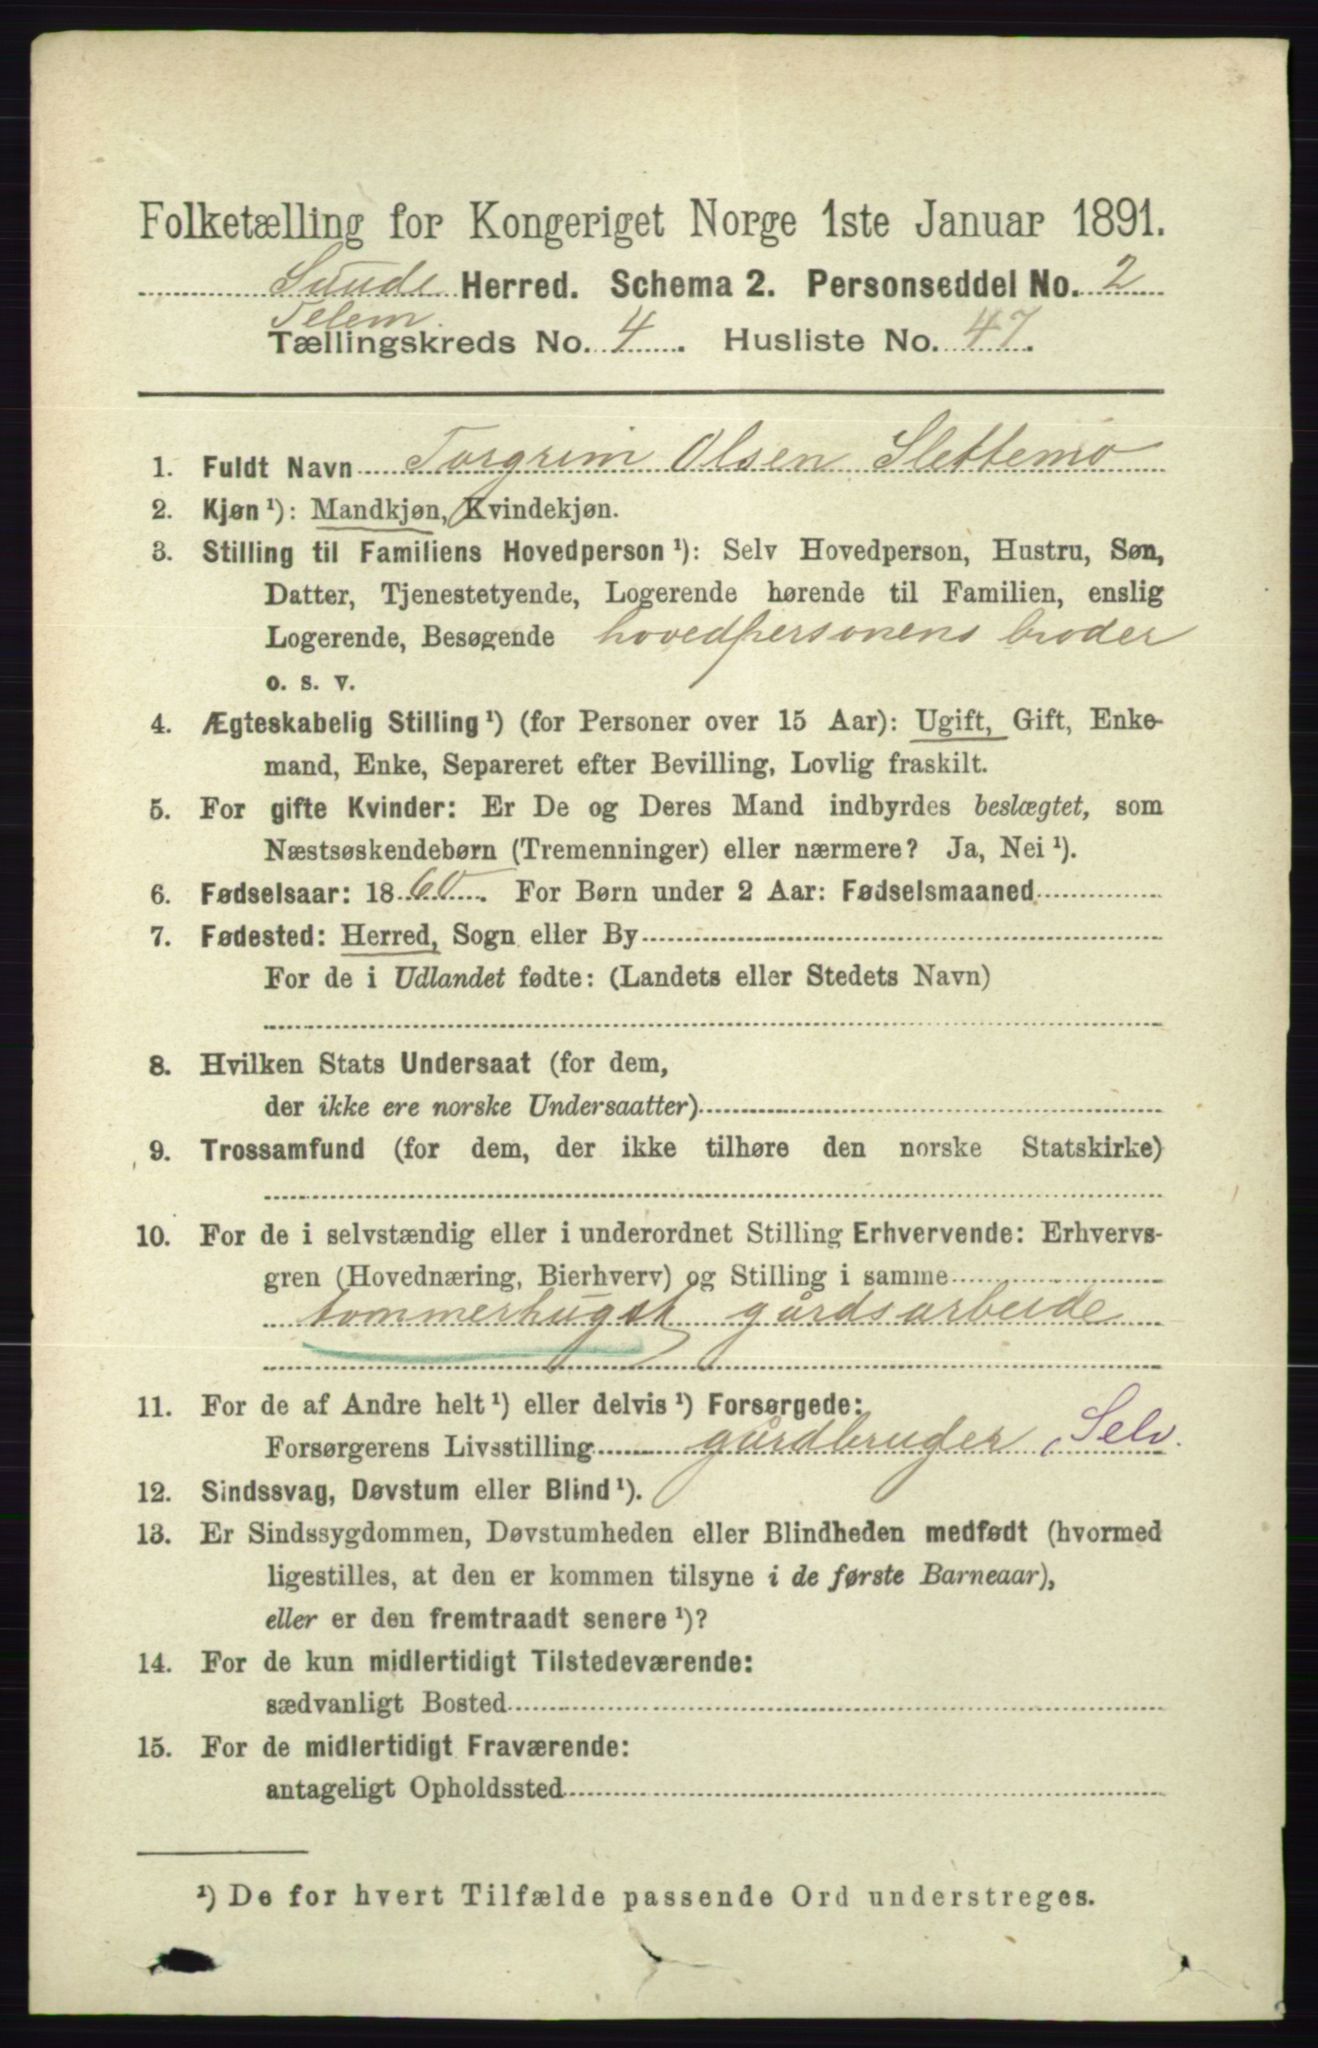 Folketælling for Kongeriget Norge 1ste Januar 1891.
Saude Herred. Schema 2. Personseddel No. 2
Telem.
Tællingskreds No. 4. Husliste No. 47.
1. Fuldt Navn Torgrim Olsen Slettemo
2. Kjøn ¹): Mandkjøn, Kvindekjøn.
3. Stilling til Familiens Hovedperson ¹): Selv Hovedperson, Hustru, Søn,
Datter, Tjenestetyende, Logerende hørende til Familien, enslig
Logerende, Besøgende hovedpersonens broder
o. s. v.
4. Ægteskabelig Stilling ¹) (for Personer over 15 Aar): Ugift, Gift, Enke-
mand, Enke, Separeret efter Bevilling, Lovlig fraskilt.
5. For gifte Kvinder: Er De og Deres Mand indbyrdes beslægtet, som
Næstsøskendebørn (Tremenninger) eller nærmere? Ja, Nei ¹).
6. Fødselsaar: 1860. For Børn under 2 Aar: Fødselsmaaned
7. Fødested: Herred, Sogn eller By
For de i Udlandet fødte: (Landets eller Stedets Navn)
8. Hvilken Stats Undersaat (for dem,
der ikke ere norske Undersaatter)
9. Trossamfund (for dem, der ikke tilhøre den norske Statskirke)
10. For de i selvstændig eller i underordnet Stilling Erhvervende: Erhvervs-
gren (Hovednæring, Bierhverv) og Stilling i samme
tommerhugst gårdsarbeide
11. For de af Andre helt ¹) eller delvis ¹) Forsørgede:
Forsørgerens Livsstilling gårdbruger, Selv.
12. Sindssvag, Døvstum eller Blind ¹).
13. Er Sindssygdommen, Døvstumheden eller Blindheden medfødt (hvormed
ligestilles, at den er kommen tilsyne i de første Barneaar),
eller er den fremtraadt senere ¹)?
14. For de kun midlertidigt Tilstedeværende:
sædvanligt Bosted
15. For de midlertidigt Fraværende:
antageligt Opholdssted
¹) De for hvert Tilfælde passende Ord understreges.